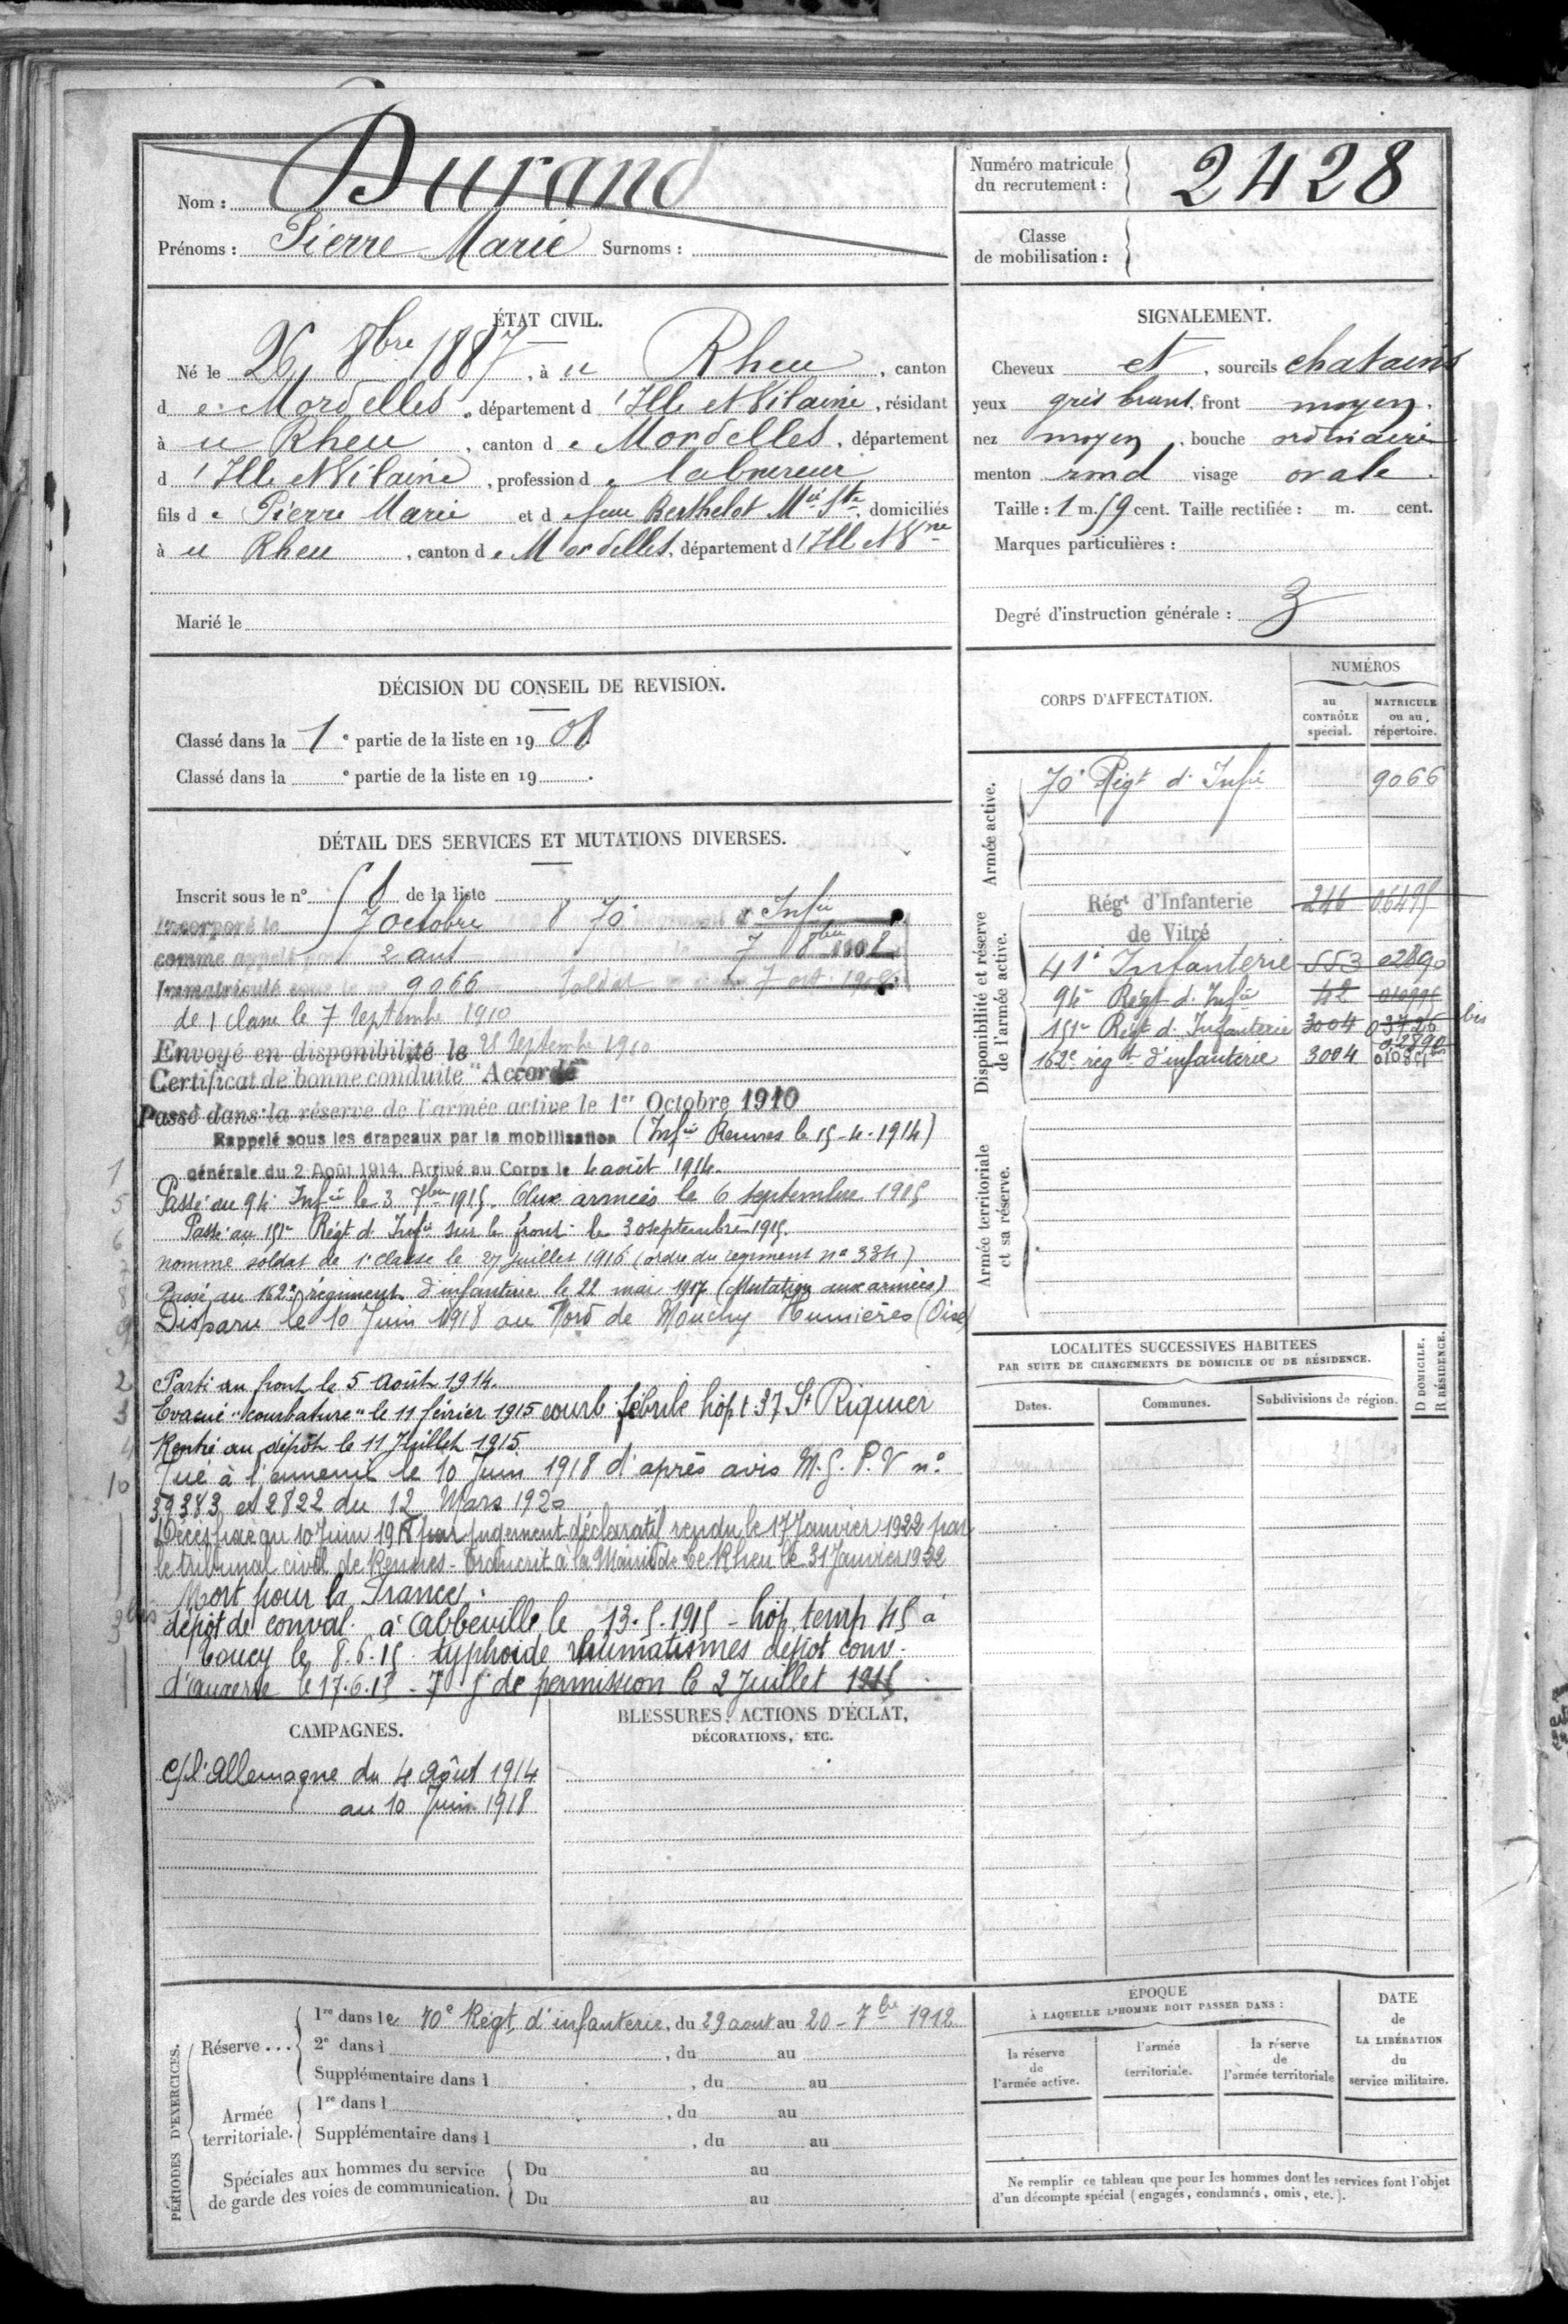 Nom : Durand
Prénoms : Pierre Marie Surnoms :
Numéro matricule du recrutement : 2428
Classe de mobilisation :
ÉTAT CIVIL.
Né le 26 8bre 1887, à u Rheu, canton
d e Mordelles, département d'Ille et Vilaine, résidant
à u Rheu, canton d e Mordelles, département
d'Ille et Vilaine, profession d e laboureur
fils d e Pierre Marie et d e feue Berthelot Mie Ste, domiciliés
à u Rheu, canton d e Mordelles, département d'Ille et Vne
Marié le
SIGNALEMENT.
Cheveux et, sourcils chatains
yeux gris bruns, front moyen.
nez moyen, bouche ordinaire
menton rond visage ovale.
Taille : 1 m. 59 cent. Taille rectifiée : m. cent.
Marques particulières :
Degré d'instruction générale : 3
DÉCISION DU CONSEIL DE REVISION.
Classé dans la 1e partie de la liste en 1908.
Classé dans la e partie de la liste en 19 .
DÉTAIL DES SERVICES ET MUTATIONS DIVERSES.
Inscrit sous le n° 58 de la liste
Incorporé le 7 octobre 8 70e Régiment d'Infie
comme appelé 2 ans 7 8bre 1908
Immatriculé sous le n° 9066 Soldat 7 oct. 1908
de 1 classe le 7 Septembre 1910
Envoyé en disponibilité le 25 Septembre 1910
Certificat de bonne conduite "Accordé"
Passé dans la réserve de l'armée active le 1er Octobre 1910
Rappelé sous les drapeaux par la mobilisation (Infie Rennes le 15-4-1914)
1 générale du 2 Août 1914. Arrivé au Corps le 4 août 1914.
5 Passé au 94e Infie le 3 7bre 1915. Aux armées le 6 septembre 1915
6 Passé au 151e Régt d'Infie sur le front le 30 septembre 1915.
7 nommé soldat de 1e classe le 27 juillet 1916 (ordre du régiment n° 334)
8 Passé au 162e régiment d'infanterie le 22 mai 1917 (Mutation aux armées)
9 Disparu le 10 Juin 1918 au Nord de Mouchy Humières (Oise)
2 Parti au front le 5 Août 1914.
3 Evacué "courbature" le 11 février 1915 courb. fébrile hôpt 37 St Riquier
4 Rentré au dépôt le 11 Juillet 1915
10 Tué à l'ennemi le 10 Juin 1918 d'après avis M.G. P.V n°
39383 et 2822 du 12 Mars 1920
Décès fixé au 10 Juin 1918 par jugement déclaratif rendu le 17 Janvier 1922 par
le tribunal civil de Rennes - Transcrit à la Mairie de Le Rheu le 31 Janvier 1922
Mort pour la France.
3 bis dépôt de conval. à Abbeville le 13.5.1915 - hôp. temp 45 à
Toucy le 8.6.15 typhoïde rhumatismes dépôt conv.
d'auxerre le 17.6.15 - 7 j de permission le 2 Juillet 1915.
CORPS D'AFFECTATION.
NUMÉROS
au CONTRÔLE spécial.
MATRICULE ou au répertoire.
Armée active.
70e Régt d'Infie 9066
Disponibilité et réserve de l'armée active.
Régt d'Infanterie 246 06495
de Vitré
41e Infanterie 553 02890
94e Régt d'Infie 42
151e Régt d'Infanterie 3004 03726 bis
02890
162e régt d'infanterie 3004
Armée territoriale et sa réserve.
LOCALITÉS SUCCESSIVES HABITÉES
PAR SUITE DE CHANGEMENTS DE DOMICILE OU DE RÉSIDENCE.
Dates.
Communes.
Subdivisions de région.
D DOMICILE.
R RÉSIDENCE.
CAMPAGNES.
c/ l'Allemagne du 4 Août 1914
au 10 Juin 1918
BLESSURES, ACTIONS D'ÉCLAT,
DÉCORATIONS, ETC.
PÉRIODES D'EXERCICES.
Réserve...
1re dans le 70e Régt d'infanterie, du 29 août au 20 - 7bre 1912
2e dans l , du au
Supplémentaire dans l , du au
Armée territoriale.
1re dans l , du au
Supplémentaire dans l , du au
Spéciales aux hommes du service
de garde des voies de communication.
Du au
Du au
ÉPOQUE
À LAQUELLE L'HOMME DOIT PASSER DANS :
la réserve de l'armée active.
l'armée territoriale.
la réserve de l'armée territoriale
DATE de LA LIBÉRATION du service militaire.
Ne remplir ce tableau que pour les hommes dont les services font l'objet
d'un décompte spécial (engagés, condamnés, omis, etc.).